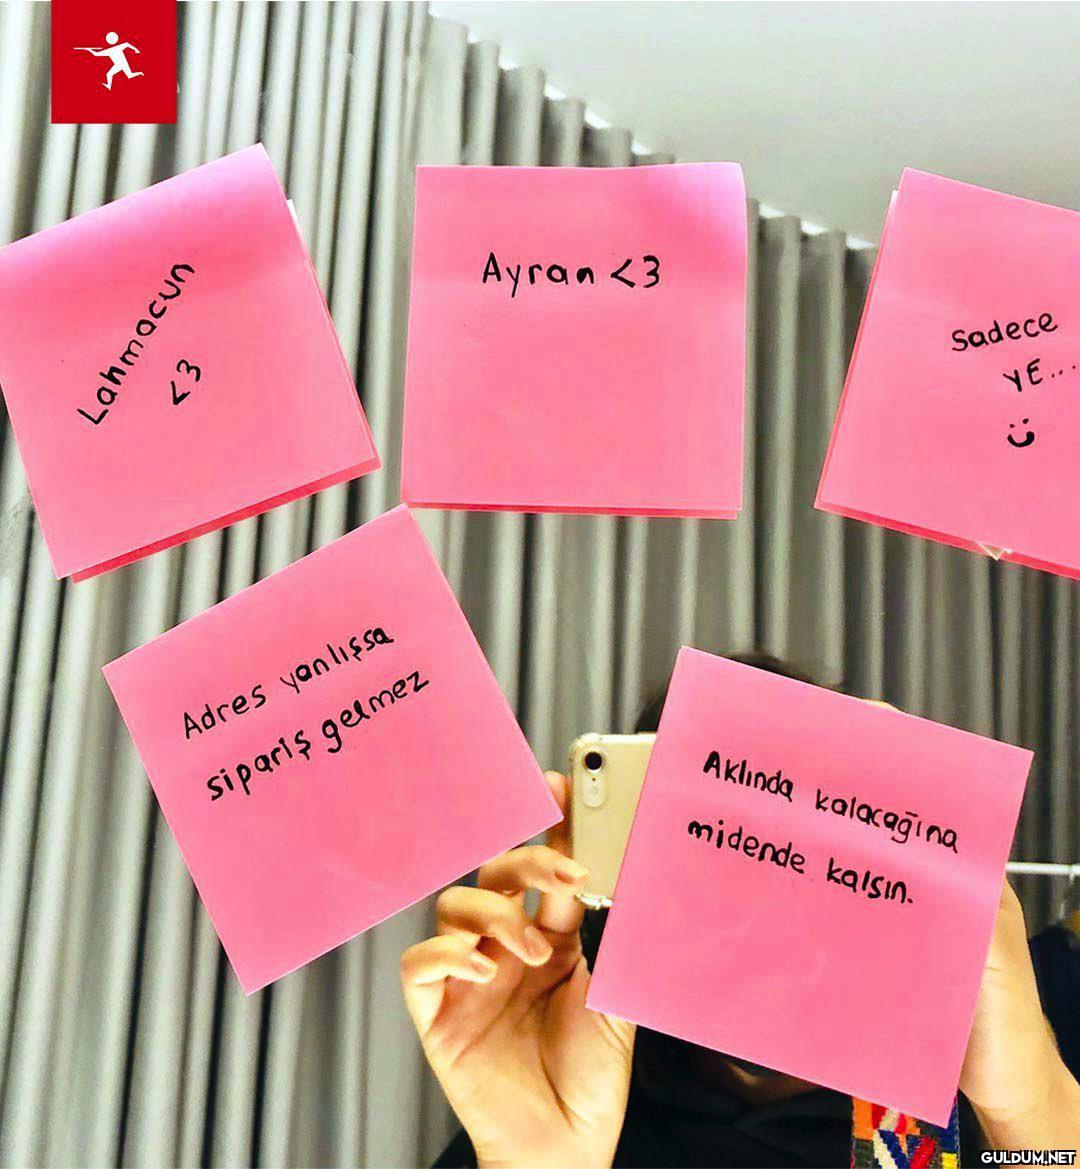 Lahmacun
<3
Ayran <3
Sadece
YE...
Adres yanlışsa
sipariş gelmez
Aklında kalacağına
midende kalsın.
GULDUM.NET